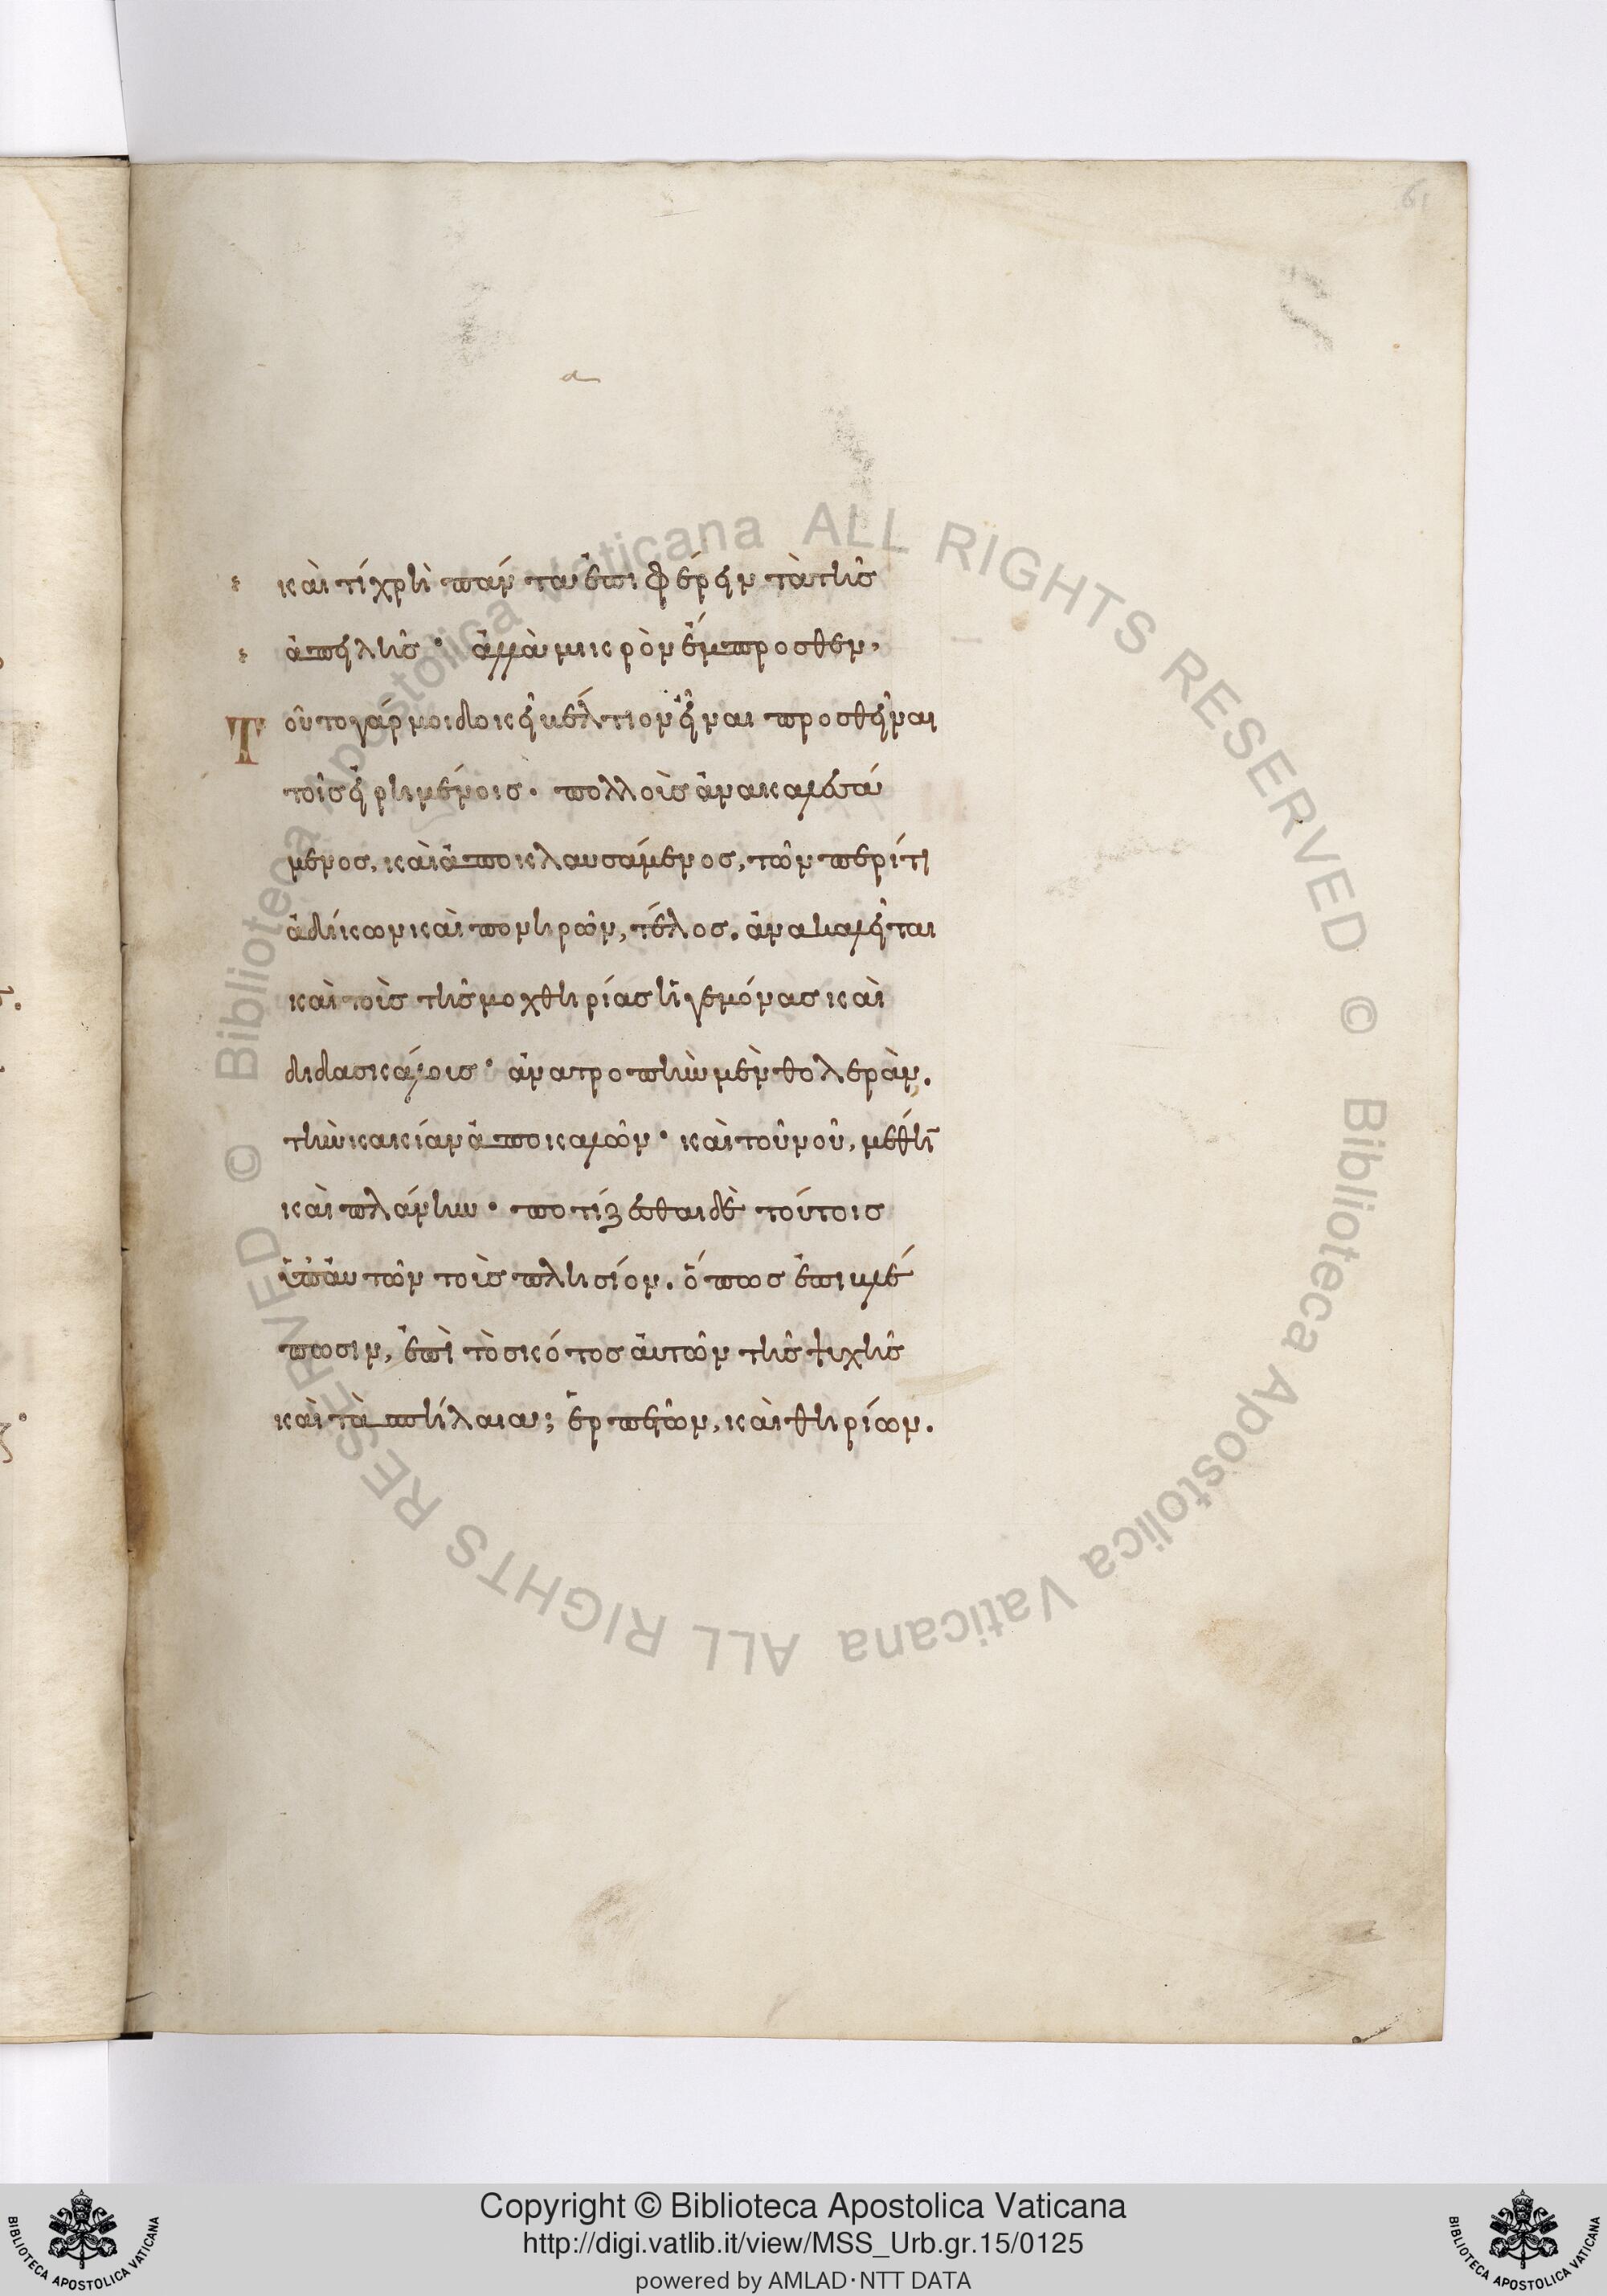 61
καὶ τί χρὴ πάντα ἐπιφέρειν τὰ τῆς
ἀπειλῆς· ἀλλὰ μικρὸν ἔμπροσθεν,
Τοῦτο γάρ μοι δοκεῖ βέλτιον εἶναι προσθεῖναι
τοῖς εἰρημένοις. πολλοὺς ἀνακαλεσά
μενος, καὶ ἀποκλαυσάμενος, τῶν περί τι
ἀδίκων καὶ πονηρῶν, τέλος. ἀνακαλεῖται
καὶ τοὺς τῆς μοχθηρίας ἡγεμόνας καὶ
διδασκάλους· ἀνατροπὴν μὲν θολεράν.
τὴν κακίαν ἀποκαλῶν· καὶ τοῦ νοῦ, μέθην
καὶ πλάνην· ποτίζεσθαι δὲ τούτοις
ὑπ' αὐτῶν τοὺς πλησίον. ὅπως ἐπιβλέ
πωσιν, ἐπὶ τὸ σκότος αὐτῶν τῆς ψυχῆς
καὶ τὰ σπήλαια; ἑρπετῶν, καὶ θηρίων.
© Biblioteca Apostolica Vaticana ALL RIGHTS RESERVED © Biblioteca Apostolica Vaticana ALL RIGHTS RESERVED
Copyright © Biblioteca Apostolica Vaticana
http://digi.vatlib.it/view/MSS_Urb.gr.15/0125
powered by AMLAD·NTT DATA
BIBLIOTECA APOSTOLICA VATICANA
BIBLIOTECA APOSTOLICA VATICANA